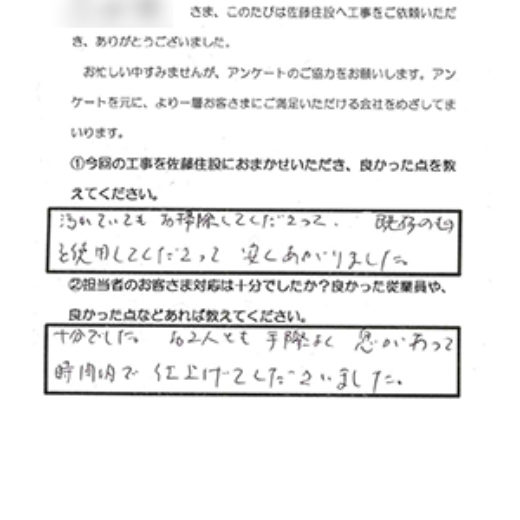 さま、このたびは佐藤住設へ工事をご依頼いただ
き、ありがとうございました。
お忙しい中すみませんが、アンケートのご協力をお願いします。アン
ケートを元に、より一層お客さまにご満足いただける会社をめざしてま
いります。
①今回の工事を佐藤住設におまかせいただき、良かった点を教
えてください。
汚れていても お掃除してくださって、既存のもの
を使用してくださって 安くあがりました。
②担当者のお客さま対応は十分でしたか？良かった従業員や、
良かった点などあれば教えてください。
十分でした。お2人とも 手際よく 息があって
時間内で 仕上げてくださいました。